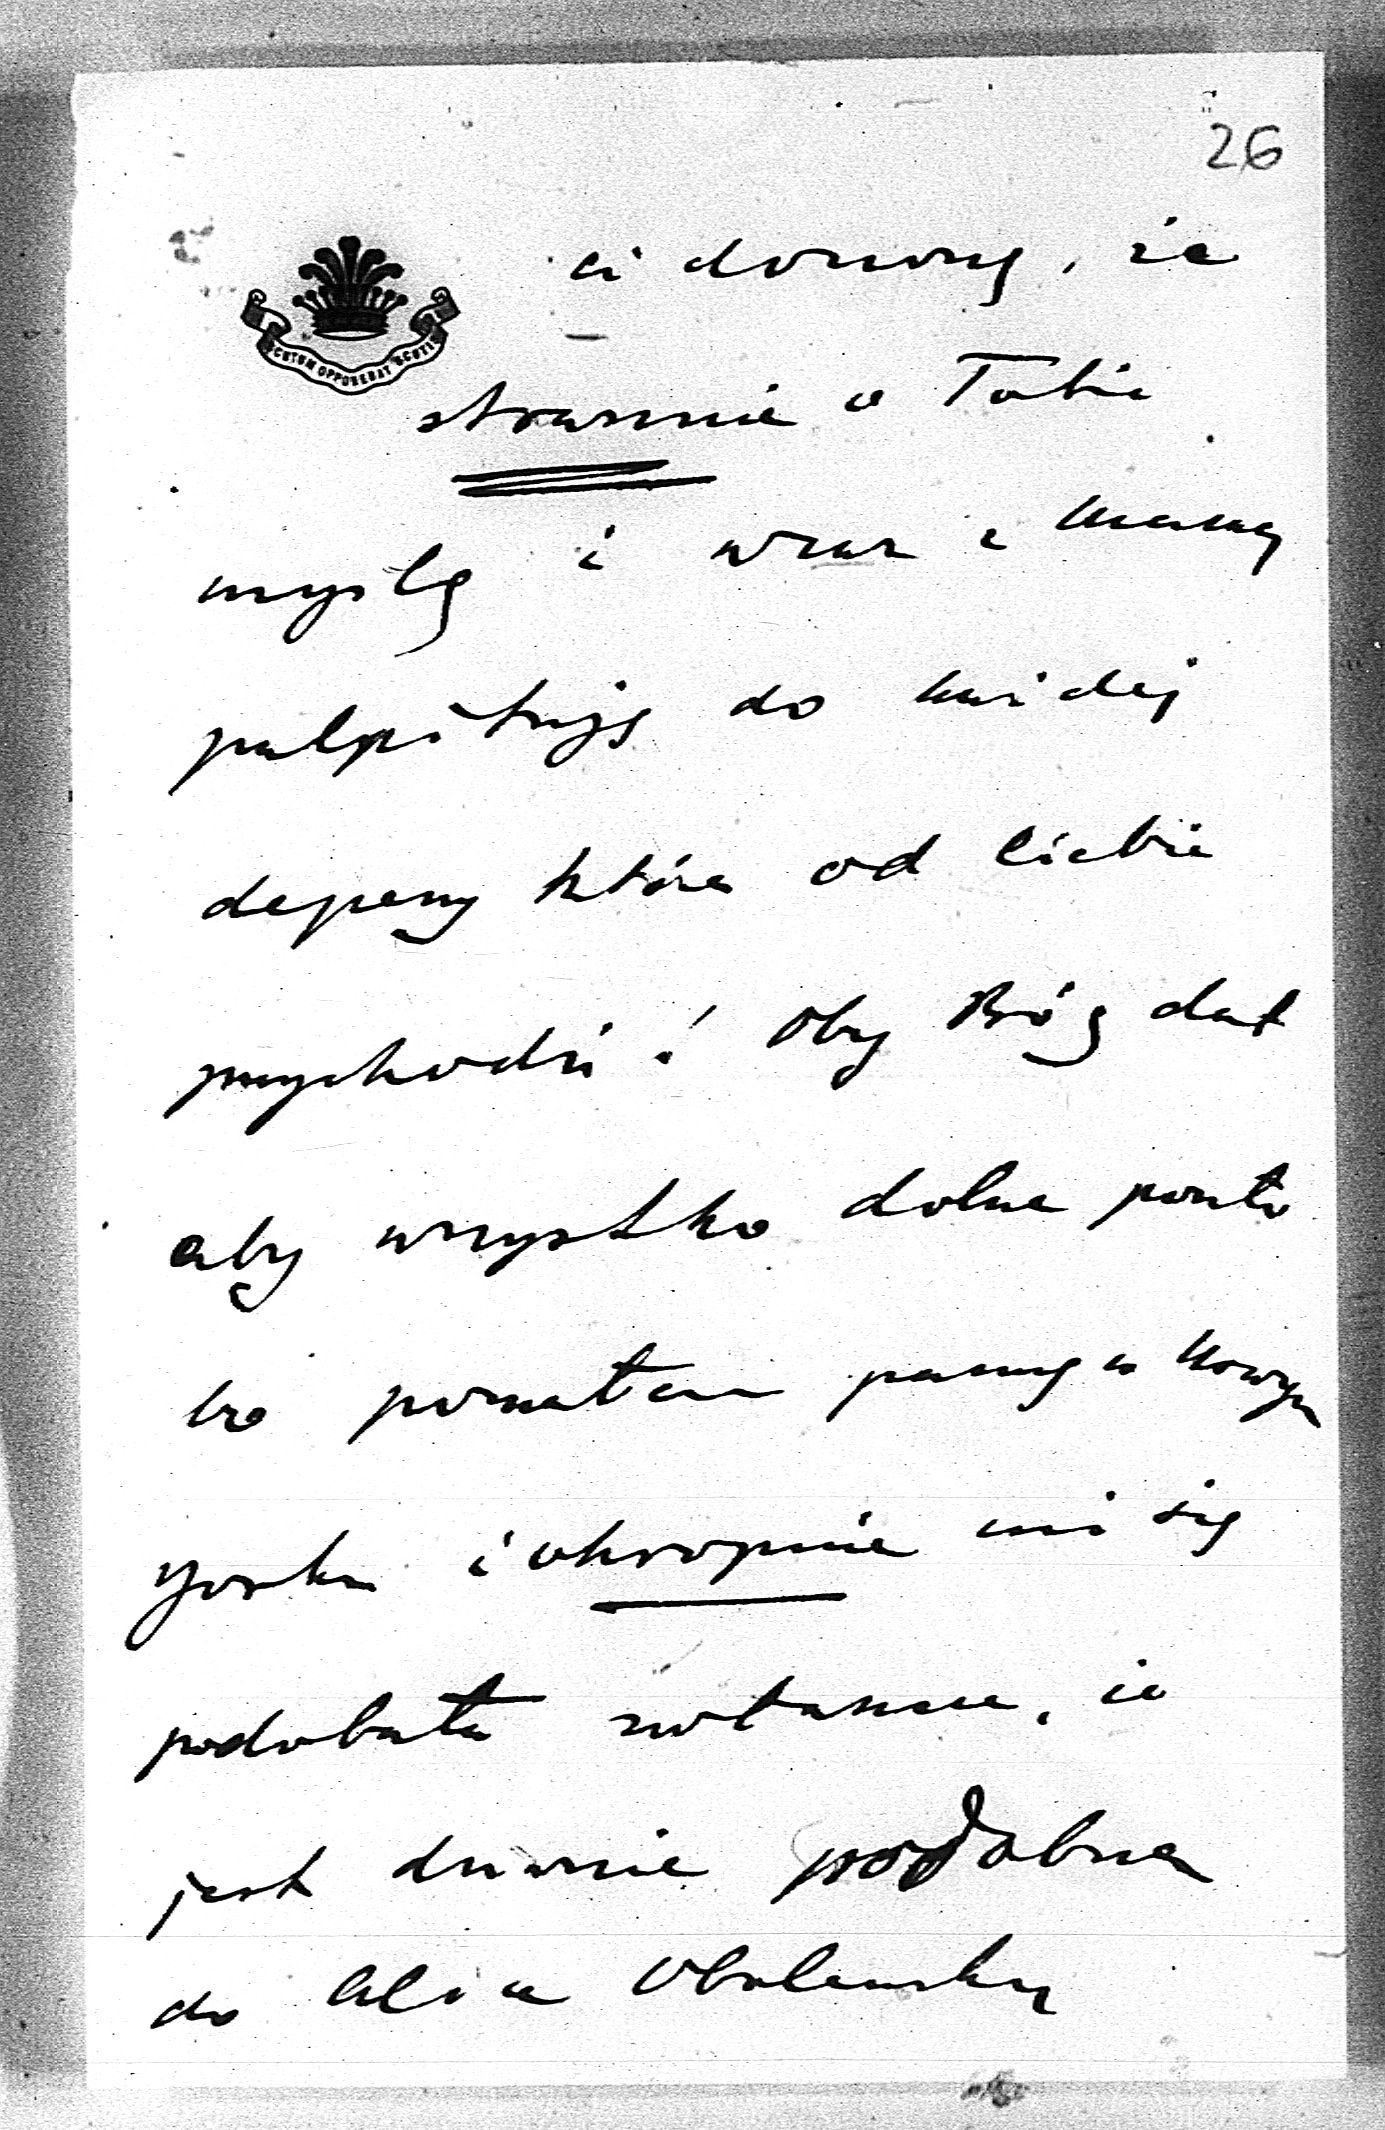 26
SCUTUM OPPONEBAT SCUTIS
ci donoszę, że
strasznie o Tobie
myślę i wraz z Mamą
palpituję do każdej
depeszy która od Ciebie
przychodzi! Oby Bóg dał
aby wszystko dobrze poszło
bo poznałam pannę w Nowym
Yorku i okropnie mi się
podobała zwłaszcza, że
jest dziwnie podobna
do Alice Obolensky